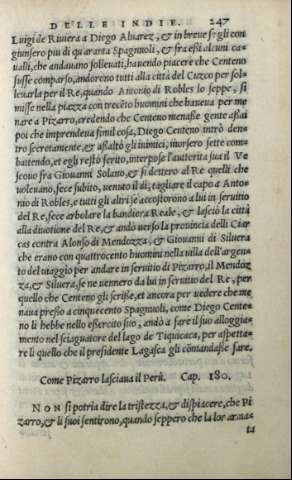 DELLE INDIE. 247
Luigi de Riuera a Diego Aluarez, & in breue se gli con
giunsero piu di quaranta Spagnuoli, & fra essi alcuni ca-
ualli, che andauano solleuati, hauendo piacere che Centeno
fusse comparso, andorono tutti alla città del Cuzco per sol-
leuarla per il Re, quando Antonio di Robles lo seppe, si
misse nella piazza con trecēto huomini che haueua per me
nare a Pizarro, credendo che Centeno menasse gente assai
poi che imprendeua simil cosa, Diego Centeno intrò den-
tro secretamente, & assaltò gli inimici, morsero sette com-
battendo, et egli restò ferito, interpose l'auttorita sua il Ve
scouo fra Giouanni Solano, & si dettero al Re quelli che
voleuano, fece subito, uenuto il dì, tagliare il capo a Anto-
nio di Robles, e tutti gli altri s'accostorono a lui in seruitio
del Re, fece arbolare la bandiera Reale, & lasciò la città
alla diuotione del Re, & andò uerso la prouincia delli Ciar
cas contra Alonso di Mendozza, & Giouanni di Siluera
che erano con quattrocento huomini nella uilla dell'argen-
to del uiaggio per andare in seruitio di Pizarro, il Mendoz
za, & Siluera, se ne uennero da lui in seruitio del Re, per
quello che Centeno gli scrisse, et ancora per uedere che me
naua presso a cinquecento Spagnuoli, come Diego Cente-
no li hebbe nello essercito suo, andò a fare il suo alloggia-
mento nel sciaguatore del lago de Tiquicaca, per aspetta-
re li quello che il presidente Lagasca gli cōmandasse fare.
Come Pizarro lasciaua il Perù. Cap. 180.
NON si potria dire la tristezza, & dispiacere, che Pi
zarro, & li suoi sentirono, quando seppero che la lor arma-
ta